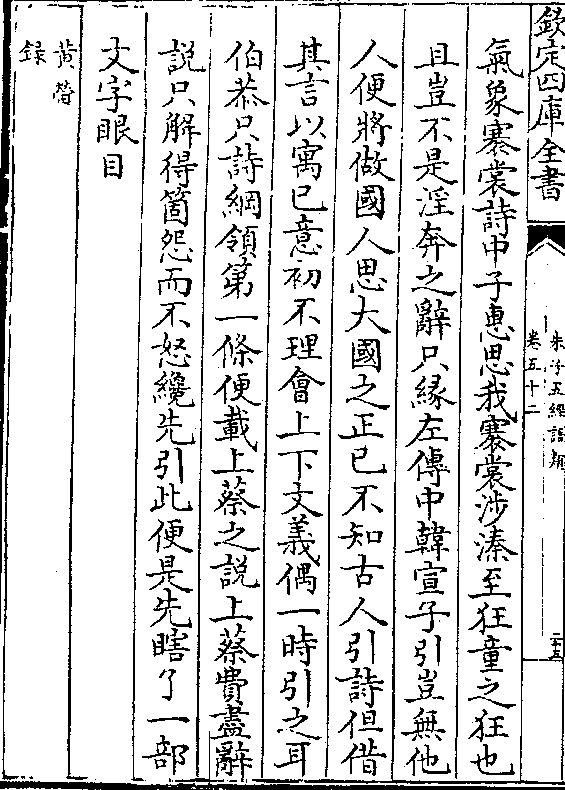 欽定四庫全書
朱子五經語類
卷五十二
二十五
氣象褰裳詩中子惠思我褰裳涉溱至狂童之狂也
且豈不是淫奔之辭只縁左傳中韓宣子引豈無他
人便將做國人思大國之正已不知古人引詩但借
其言以寓已意初不理會上下文義偶一時引之耳
伯恭只詩綱領第一條便載上蔡之說上蔡費盡辭
說只解得箇怨而不怒纔先引此便是先瞎了一部
文字眼目
黄㽦
録